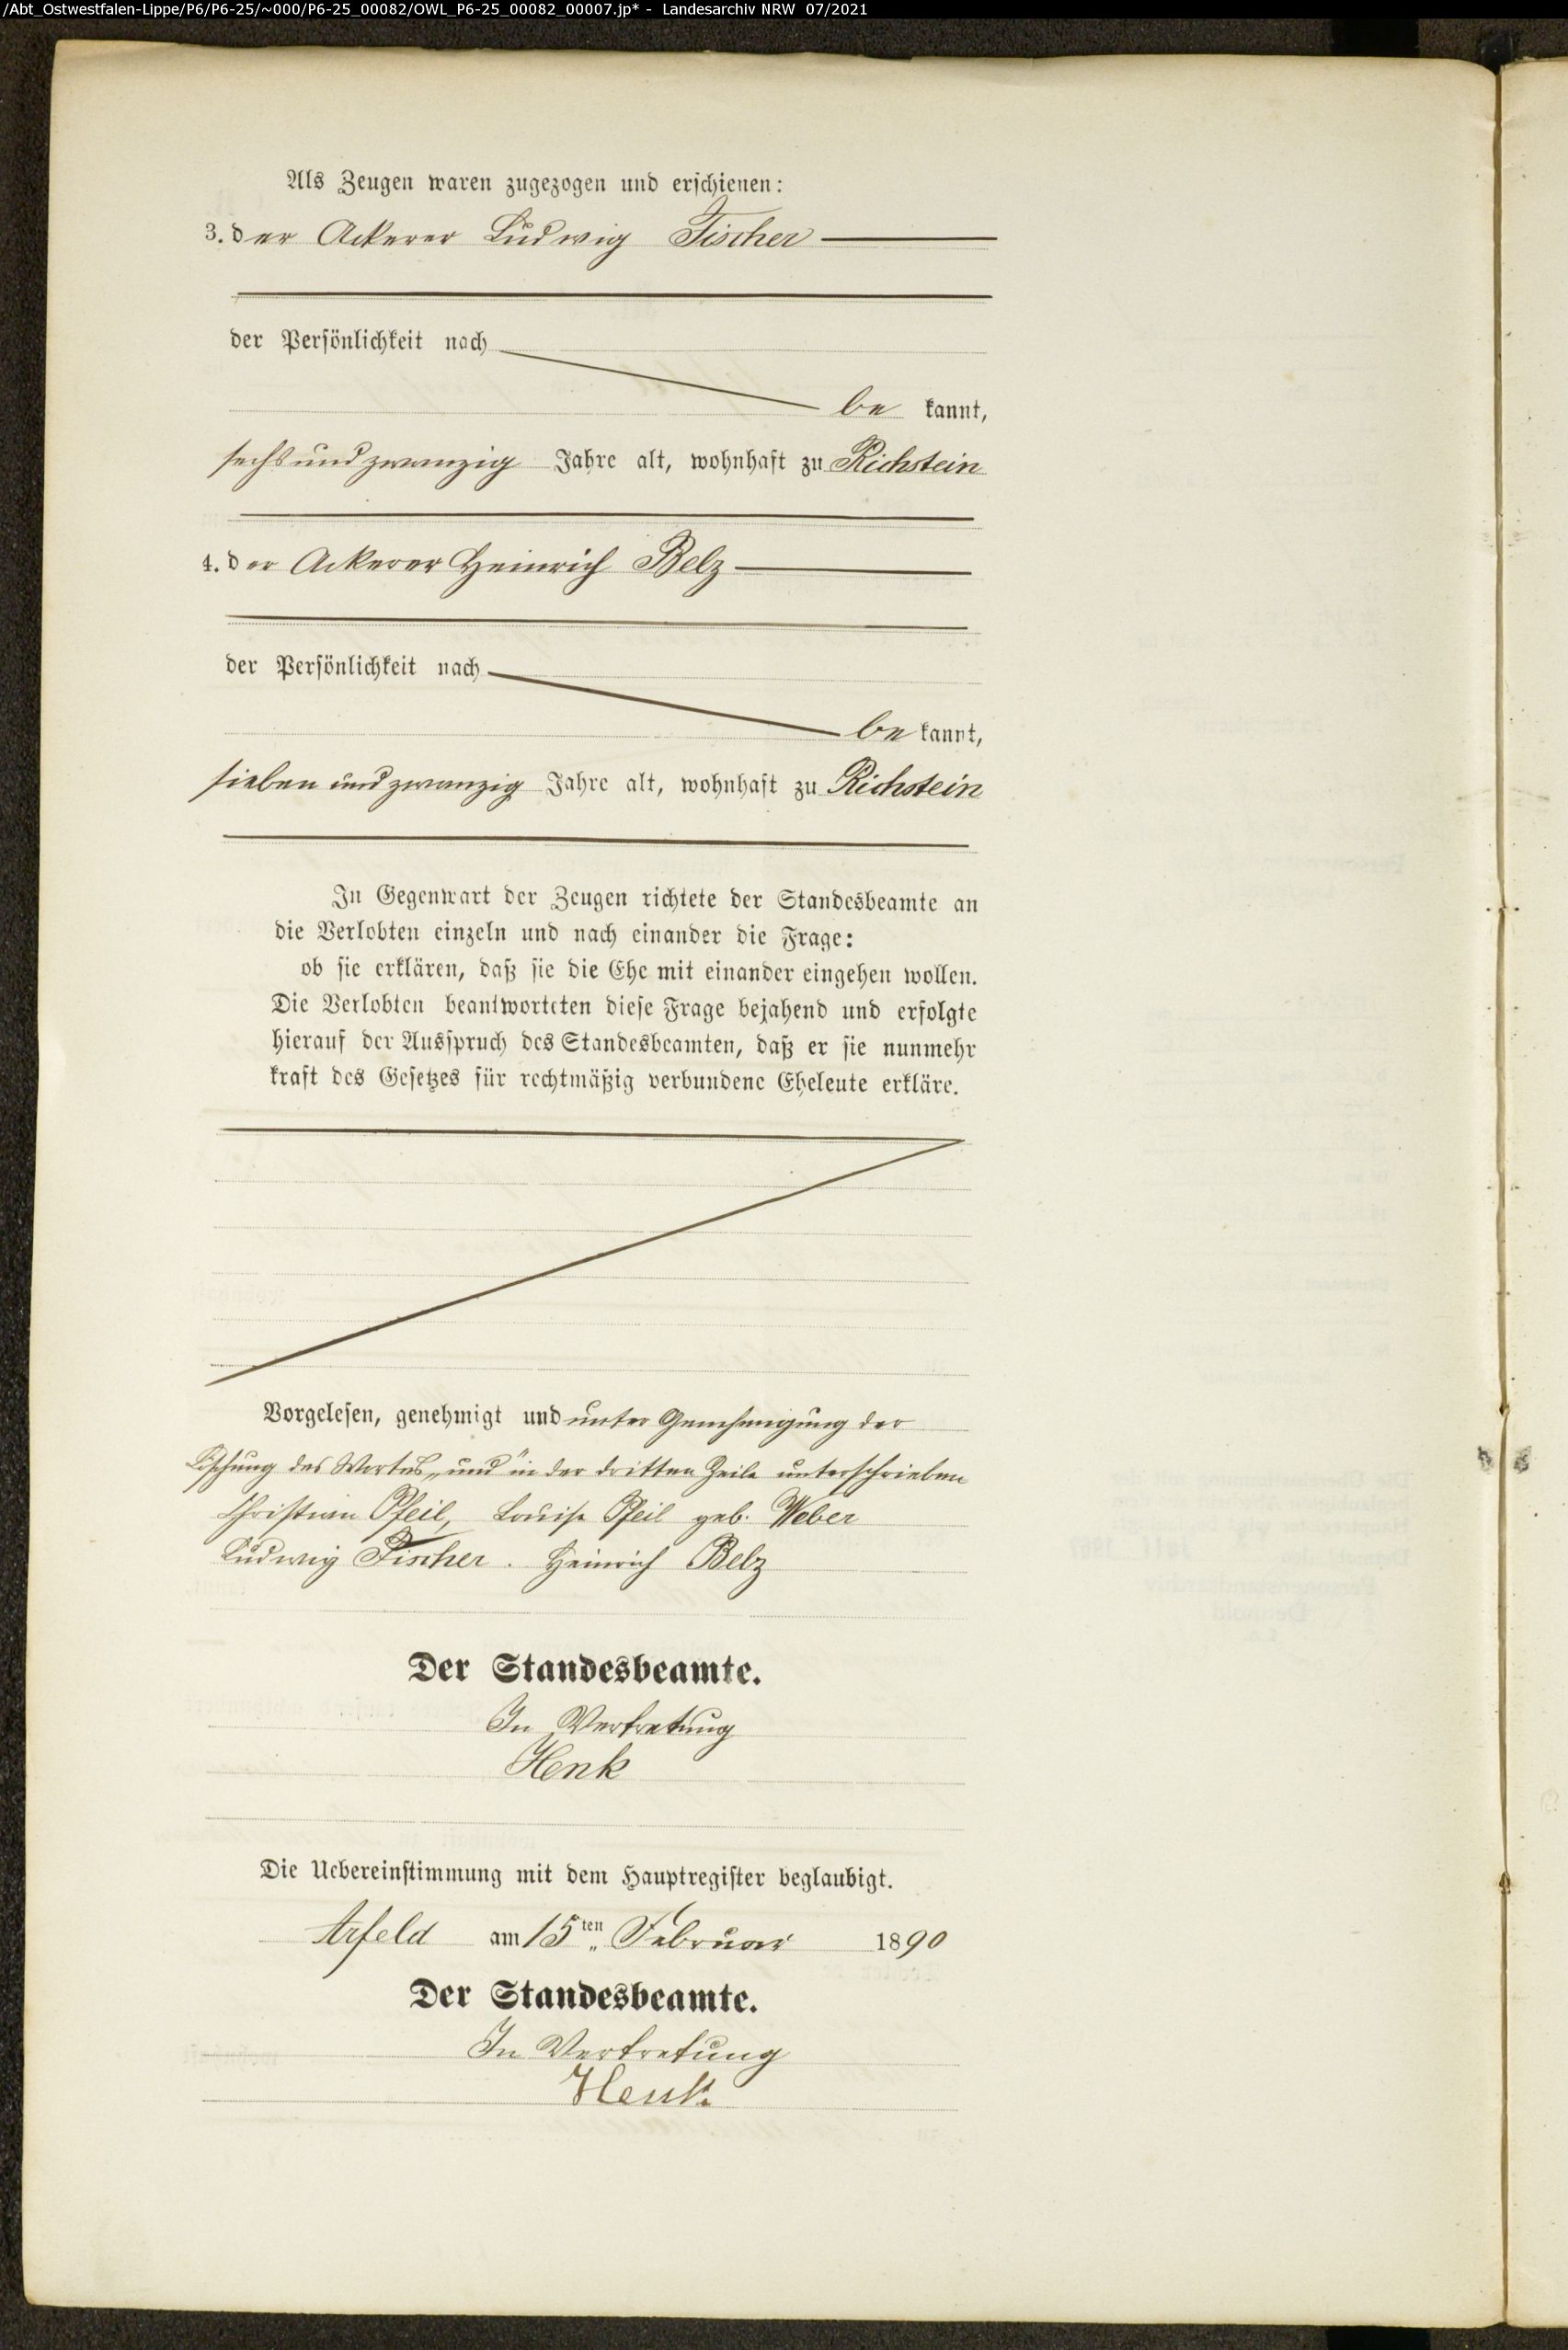 /Abt_Ostwestfalen-Lippe/P6/P6-25/~000/P6-25_00082/OWL_P6-25_00082_00007.jp* - Landesarchiv NRW 07/2021
Als Zeugen waren zugezogen und erschienen:
3. der Ackerer Ludwig Fischer
der Persönlichkeit nach
be kannt,
sechsundzwanzig Jahre alt, wohnhaft zu Richstein
4. der Ackerer Heinrich Belz
der Persönlichkeit nach
be kannt,
sieben und zwanzig Jahre alt, wohnhaft zu Richstein
In Gegenwart der Zeugen richtete der Standesbeamte an
die Verlobten einzeln und nach einander die Frage:
ob sie erklären, daß sie die Ehe mit einander eingehen wollen.
Die Verlobten beantworteten diese Frage bejahend und erfolgte
hierauf der Ausspruch des Standesbeamten, daß er sie nunmehr
kraft des Gesetzes für rechtmäßig verbundene Eheleute erkläre.
Vorgelesen, genehmigt und unter Genehmigung der
Löschung des Wortes „und" in der dritten Zeile unterschrieben
Christian Pfeil, Louise Pfeil geb. Weber
Ludwig Fischer. Heinrich Belz
Der Standesbeamte.
In Vertretung
Henk
Die Uebereinstimmung mit dem Hauptregister beglaubigt.
Arfeld am 15ten Februar 1890
Der Standesbeamte.
In Vertretung
Henk.